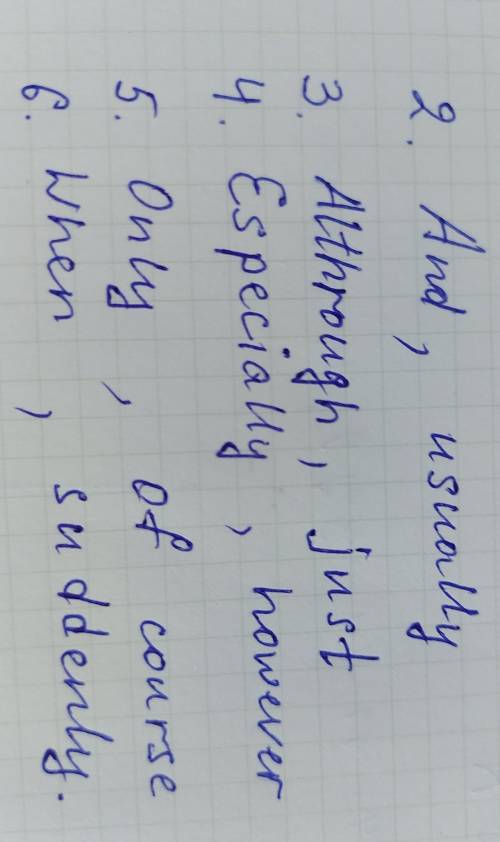 2. And, usually
3. Althrough, just
4. Especially, however
5. Only, of course
6. When, suddenly.